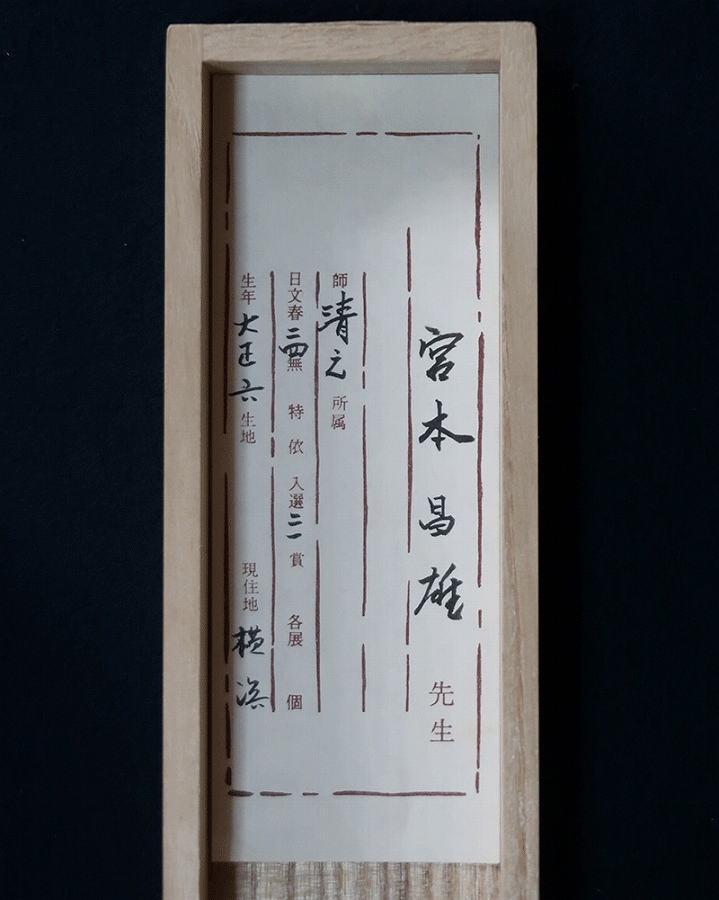 宮本昌雄先生
師 清元 所属
日文春 二四 無 特 依 入選 二一 賞 各展 個
生年 大正六 生地 現住地 横浜